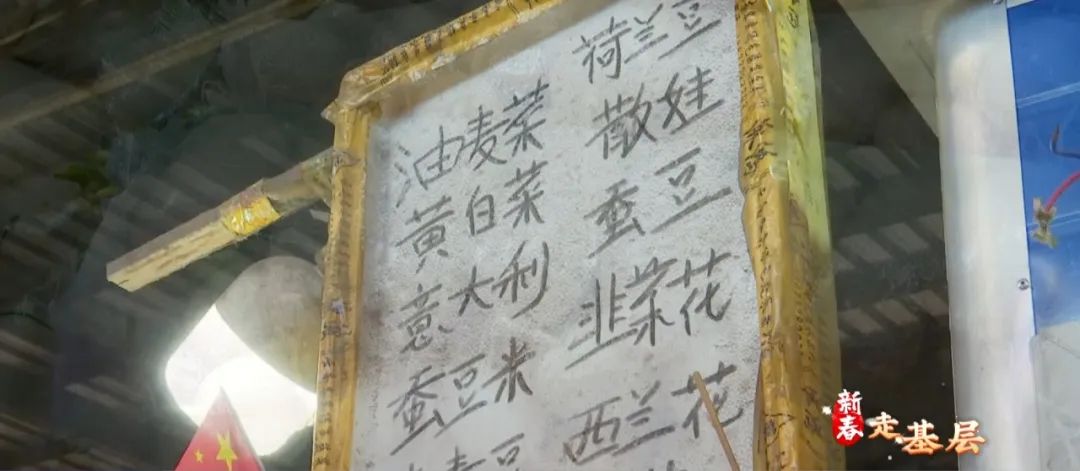 油麦菜
黄白菜
意大利
蚕豆米
荷兰豆
散娃
蚕豆
韭菜花
西兰花
新春走基层